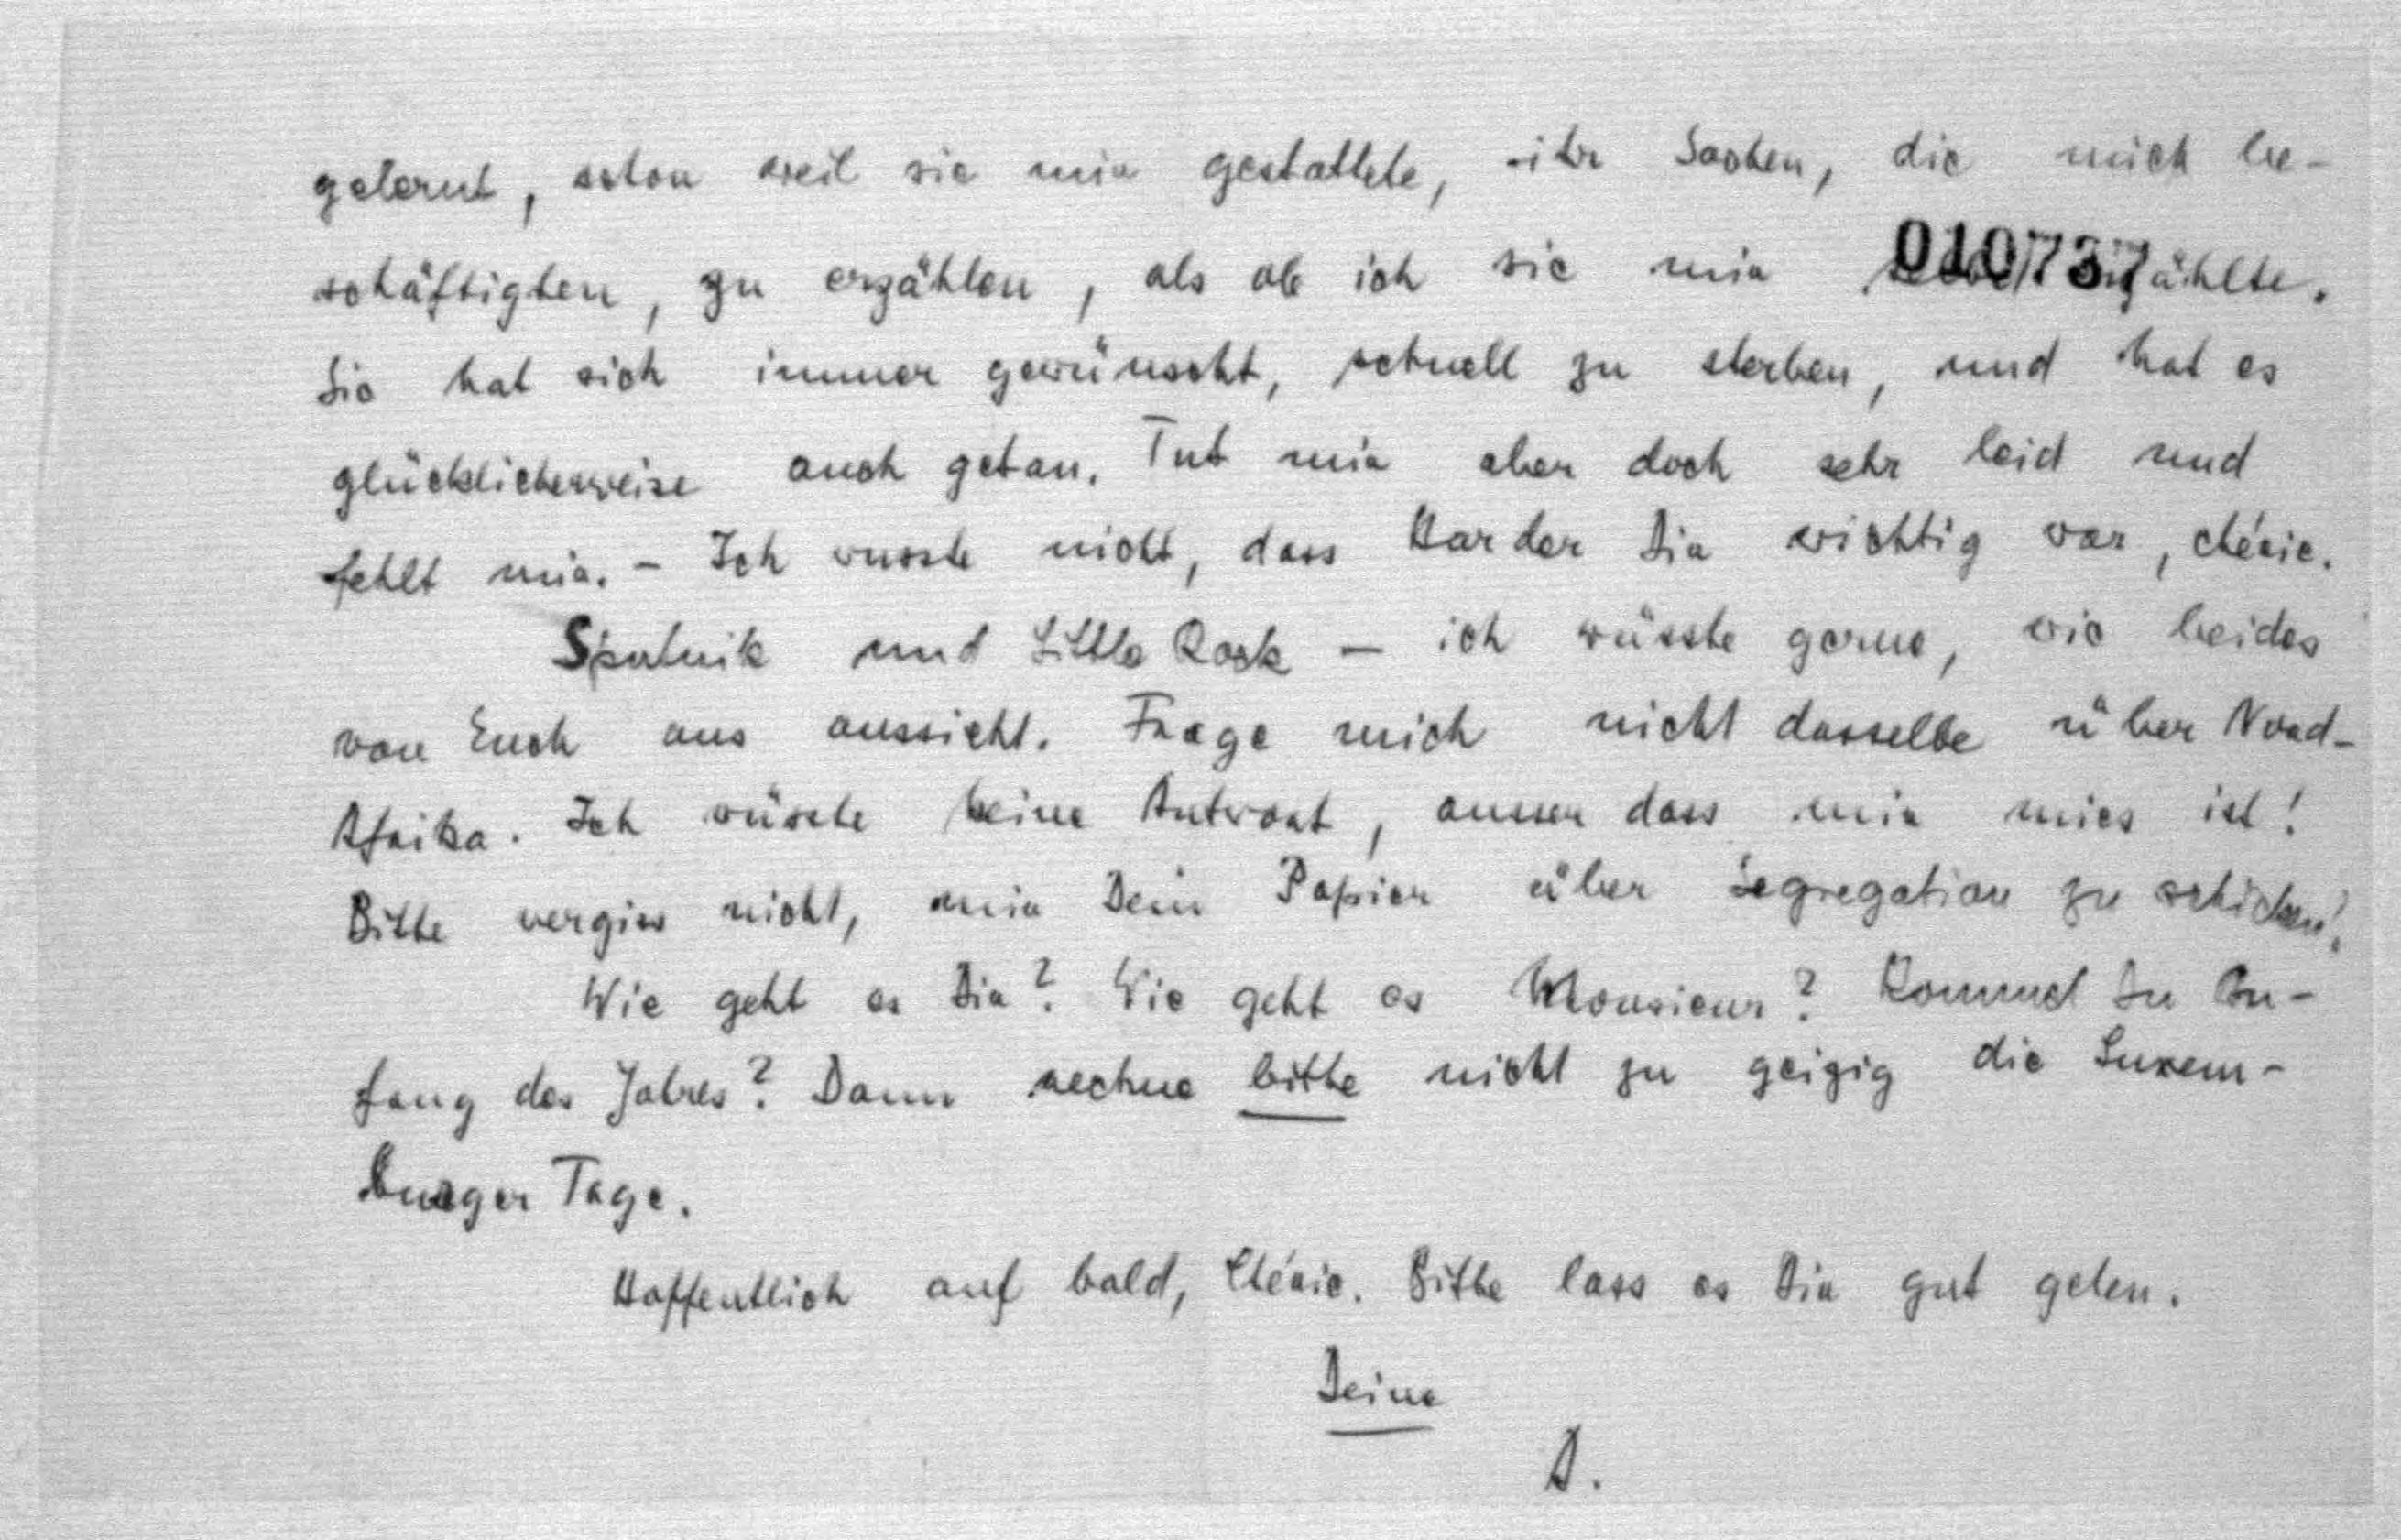 gelernt, schon weil sie mir gestattete, ihr Sachen, die mich be-
schäftigten, zu erzählen, als ob ich sie mir 010737 erzählte.
Sie hat sich immer gewünscht, schnell zu sterben, und hat es
glücklicherweise auch getan. Tut mir aber doch sehr leid und
fehlt mir. – Ich wusste nicht, dass Harder Dir wichtig war, chérie.
Sputnik und Little Rock – ich wüsste gerne, wie beides
von Euch aus aussieht. Frage mich nicht dasselbe über Nord-
Afrika. Ich wüsste keine Antwort, ausser dass mir mies ist!
Bitte vergiss nicht, mir Dein Papier über Segregation zu schicken!
Wie geht es Dir? Wie geht es Monsieur? Kommst Du An-
fang des Jahres? Dann rechne bitte nicht zu geizig die Luxem-
burger Tage.
Hoffentlich auf bald, Chérie. Bitte lass es Dir gut gehen.
Deine
A.